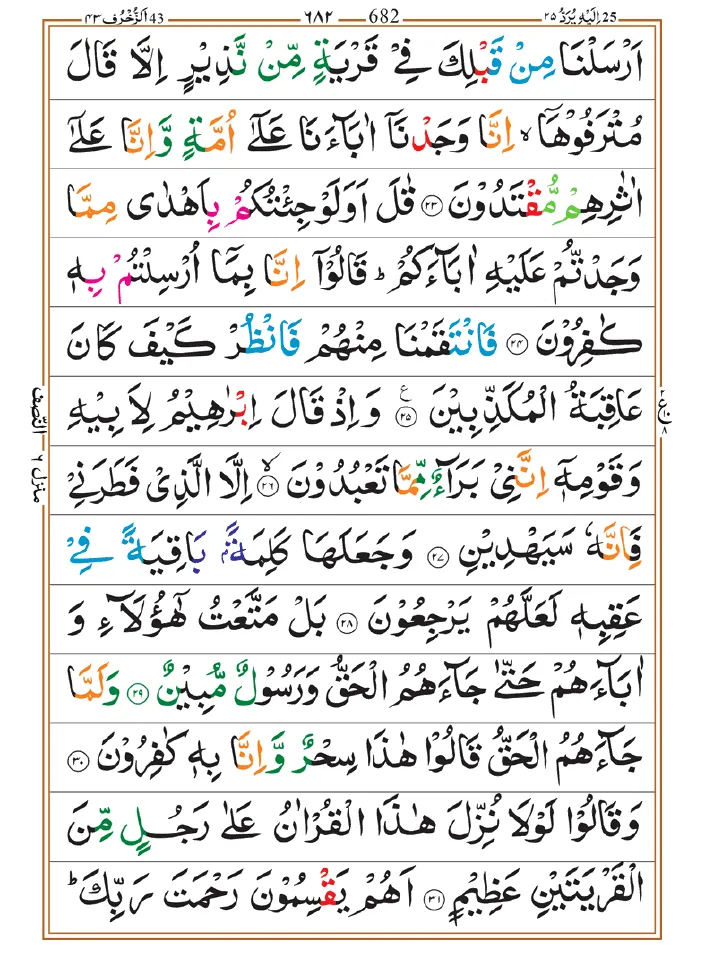 اِلَیْهِ یُرَدُّ ٢٥ 25 682 ٦٨٢ اَلزُّخْرُف ٤٣ 43
اَرْسَلْنَا مِنْ قَبْلِكَ فِیْ قَرْیَةٍ مِّنْ نَّذِیْرٍ اِلَّا قَالَ
مُتْرَفُوْهَاۤ ۙ اِنَّا وَجَدْنَاۤ اٰبَآءَنَا عَلٰۤی اُمَّةٍ وَّاِنَّا عَلٰۤی
اٰثٰرِهِمْ مُّقْتَدُوْنَ ﴿٢٣﴾ قٰلَ اَوَلَوْ جِئْتُكُمْ بِاَهْدٰی مِمَّا
وَجَدْتُّمْ عَلَیْهِ اٰبَآءَكُمْ ؕ قَالُوْۤا اِنَّا بِمَاۤ اُرْسِلْتُمْ بِهٖ
كٰفِرُوْنَ ﴿٢٤﴾ فَانْتَقَمْنَا مِنْهُمْ فَانْظُرْ كَیْفَ كَانَ
عَاقِبَةُ الْمُكَذِّبِیْنَ ﴿٢٥﴾ ع وَاِذْ قَالَ اِبْرٰهِیْمُ لِاَبِیْهِ
وَقَوْمِهٖۤ اِنَّنِیْ بَرَآءٌ مِّمَّا تَعْبُدُوْنَ ﴿٢٦﴾ ۙ اِلَّا الَّذِیْ فَطَرَنِیْ
فَاِنَّهٗ سَیَهْدِیْنِ ﴿٢٧﴾ وَجَعَلَهَا كَلِمَةًۢ بَاقِیَةً فِیْ
عَقِبِهٖ لَعَلَّهُمْ یَرْجِعُوْنَ ﴿٢٨﴾ بَلْ مَتَّعْتُ هٰۤؤُلَآءِ وَ
اٰبَآءَهُمْ حَتّٰی جَآءَهُمُ الْحَقُّ وَرَسُوْلٌ مُّبِیْنٌ ﴿٢٩﴾ وَلَمَّا
جَآءَهُمُ الْحَقُّ قَالُوْا هٰذَا سِحْرٌ وَّاِنَّا بِهٖ كٰفِرُوْنَ ﴿٣٠﴾
وَقَالُوْا لَوْلَا نُزِّلَ هٰذَا الْقُرْاٰنُ عَلٰی رَجُلٍ مِّنَ
الْقَرْیَتَیْنِ عَظِیْمٍ ﴿٣١﴾ اَهُمْ یَقْسِمُوْنَ رَحْمَتَ رَبِّكَ ؕ
النّصف
منزل ٦
ع ٨